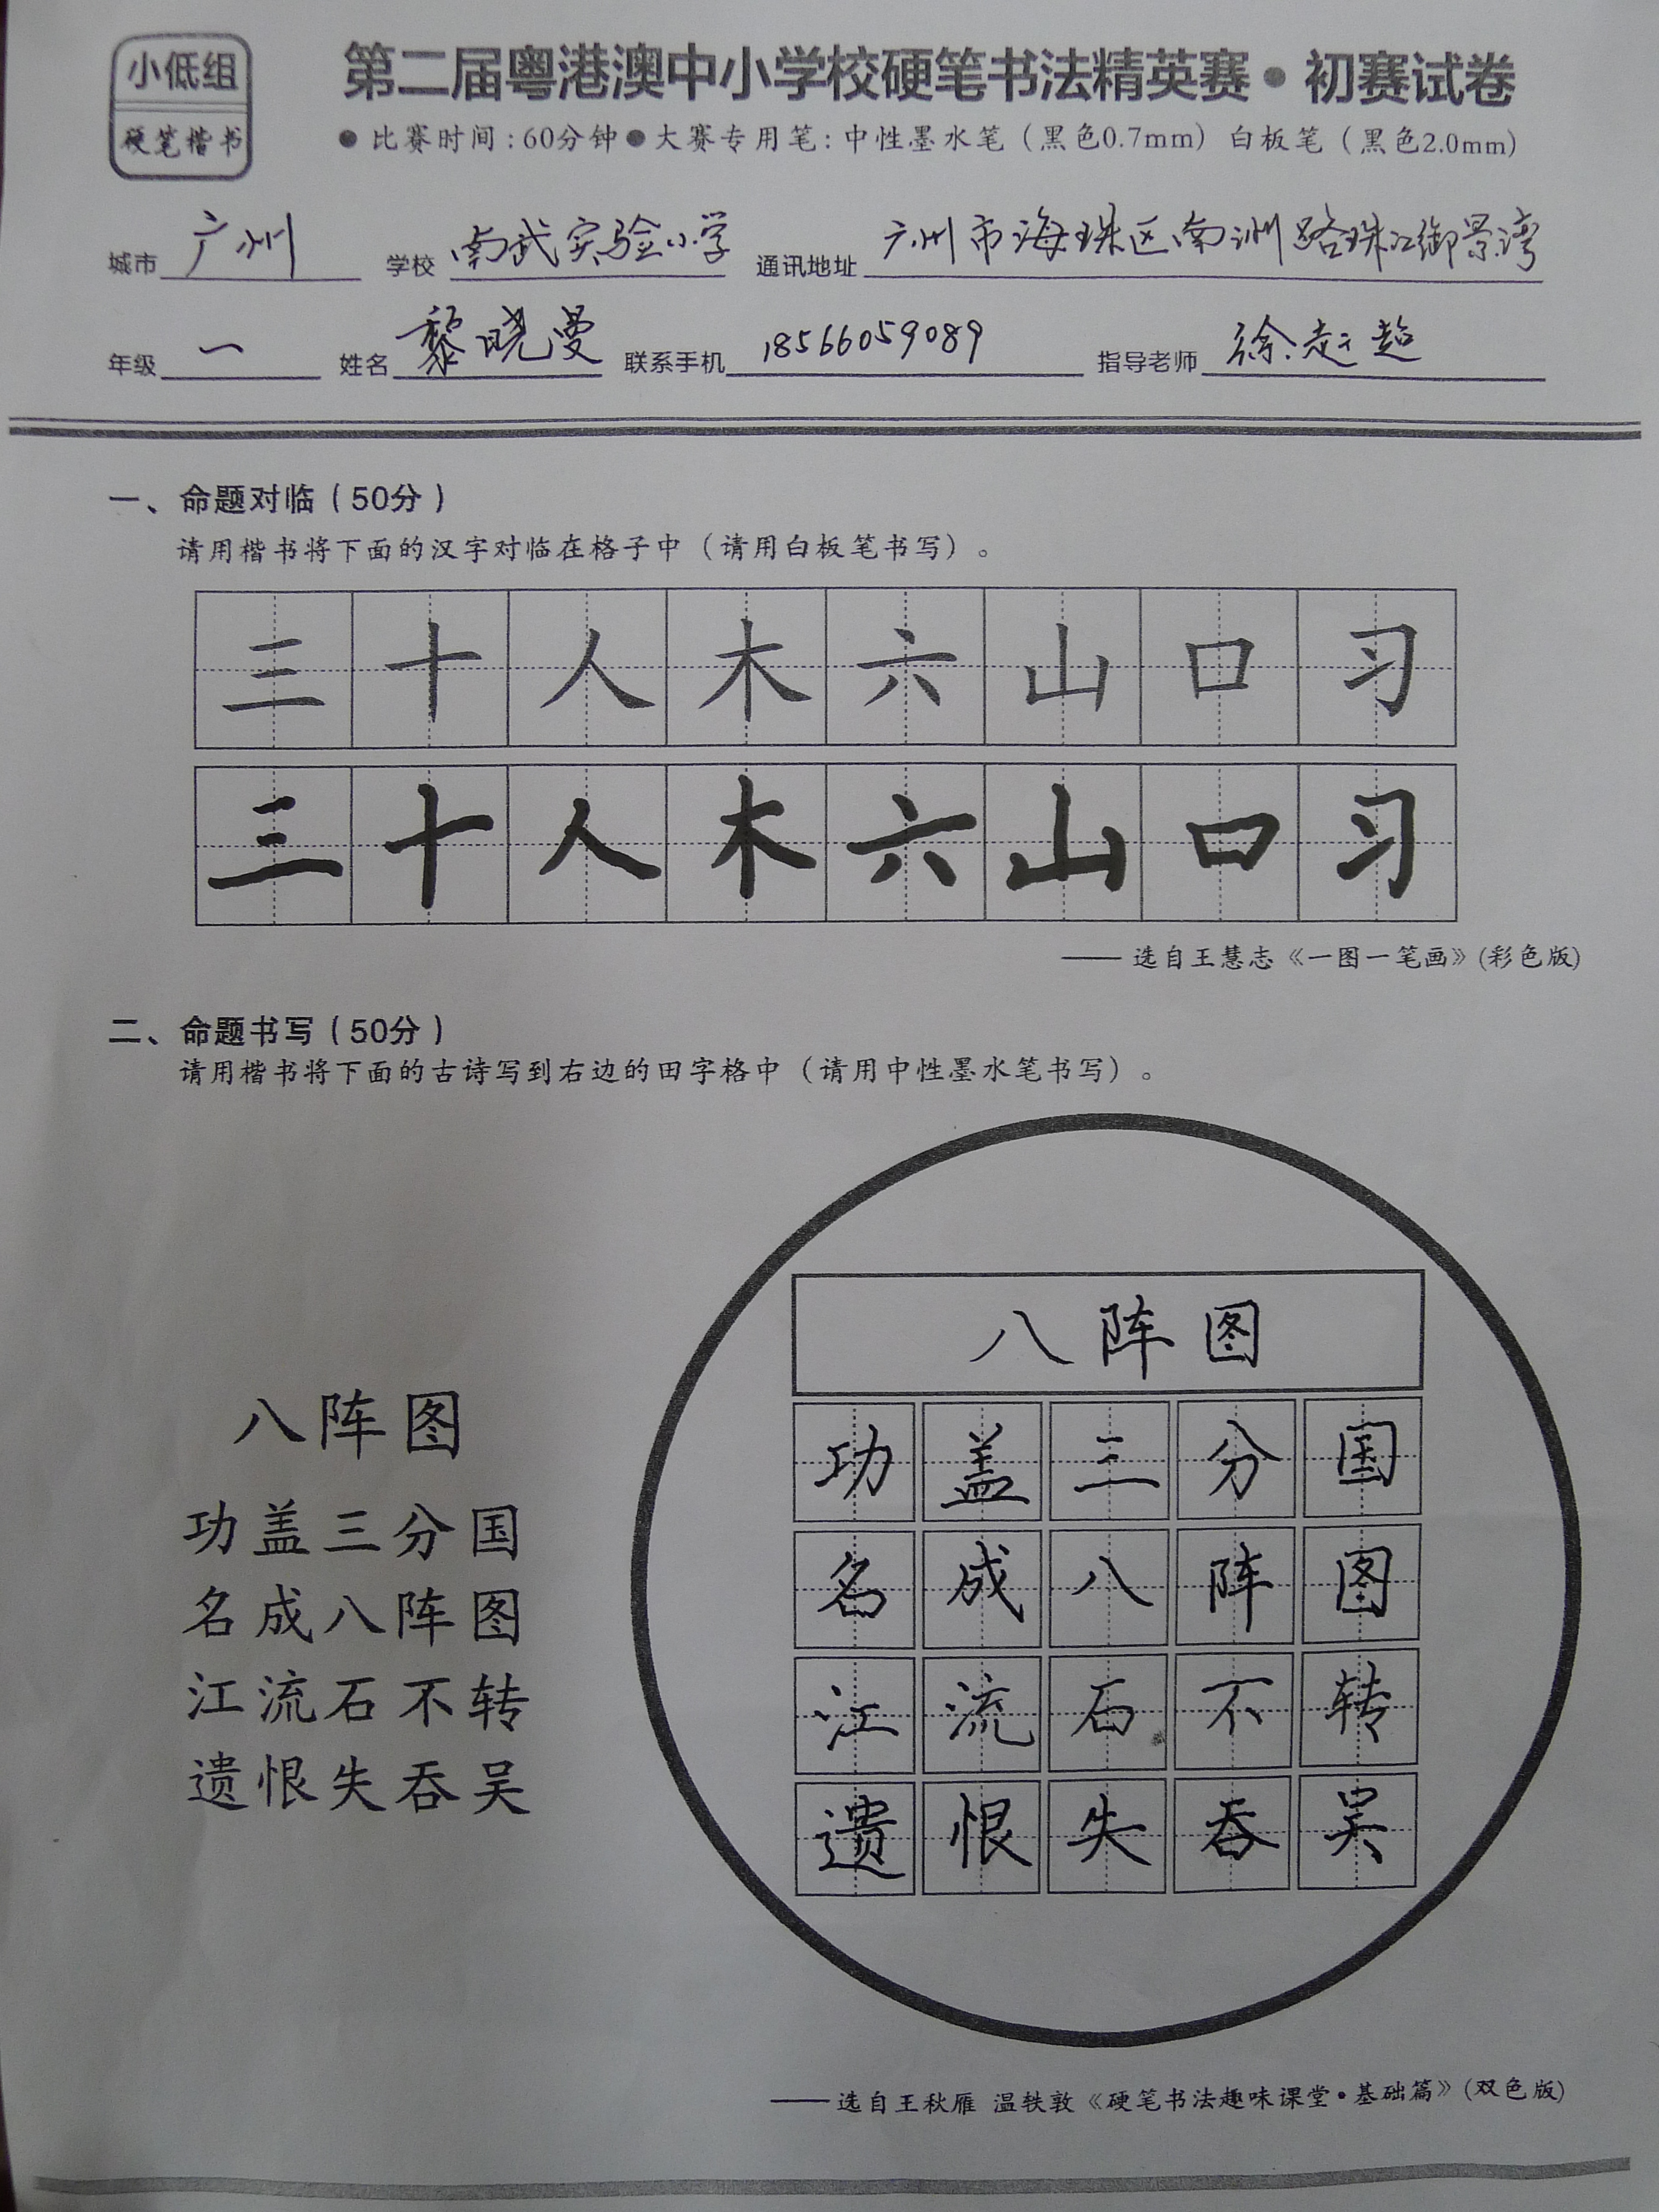 小低组
硬笔楷书
第二届粤港澳中小学校硬笔书法精英赛•初赛试卷
●比赛时间:60分钟●大赛专用笔:中性墨水笔(黑色0.7mm) 白板笔(黑色2.0mm)
城市 广州 学校 南武实验小学 通讯地址 广州市海珠区南洲路珠江御景湾
年级 一 姓名 黎晓曼 联系手机 18566059089 指导老师 徐赶超
一、命题对临(50分)
请用楷书将下面的汉字对临在格子中(请用白板笔书写)。
三十人木六山口习
三十人木六山口习
——选自王慧志《一图一笔画》(彩色版)
二、命题书写(50分)
请用楷书将下面的古诗写到右边的田字格中(请用中性墨水笔书写)。
八阵图
功盖三分国
名成八阵图
江流石不转
遗恨失吞吴
八阵图
功盖三分国
名成八阵图
江流石不转
遗恨失吞吴
——选自王秋雁 温轶敦《硬笔书法趣味课堂•基础篇》(双色版)